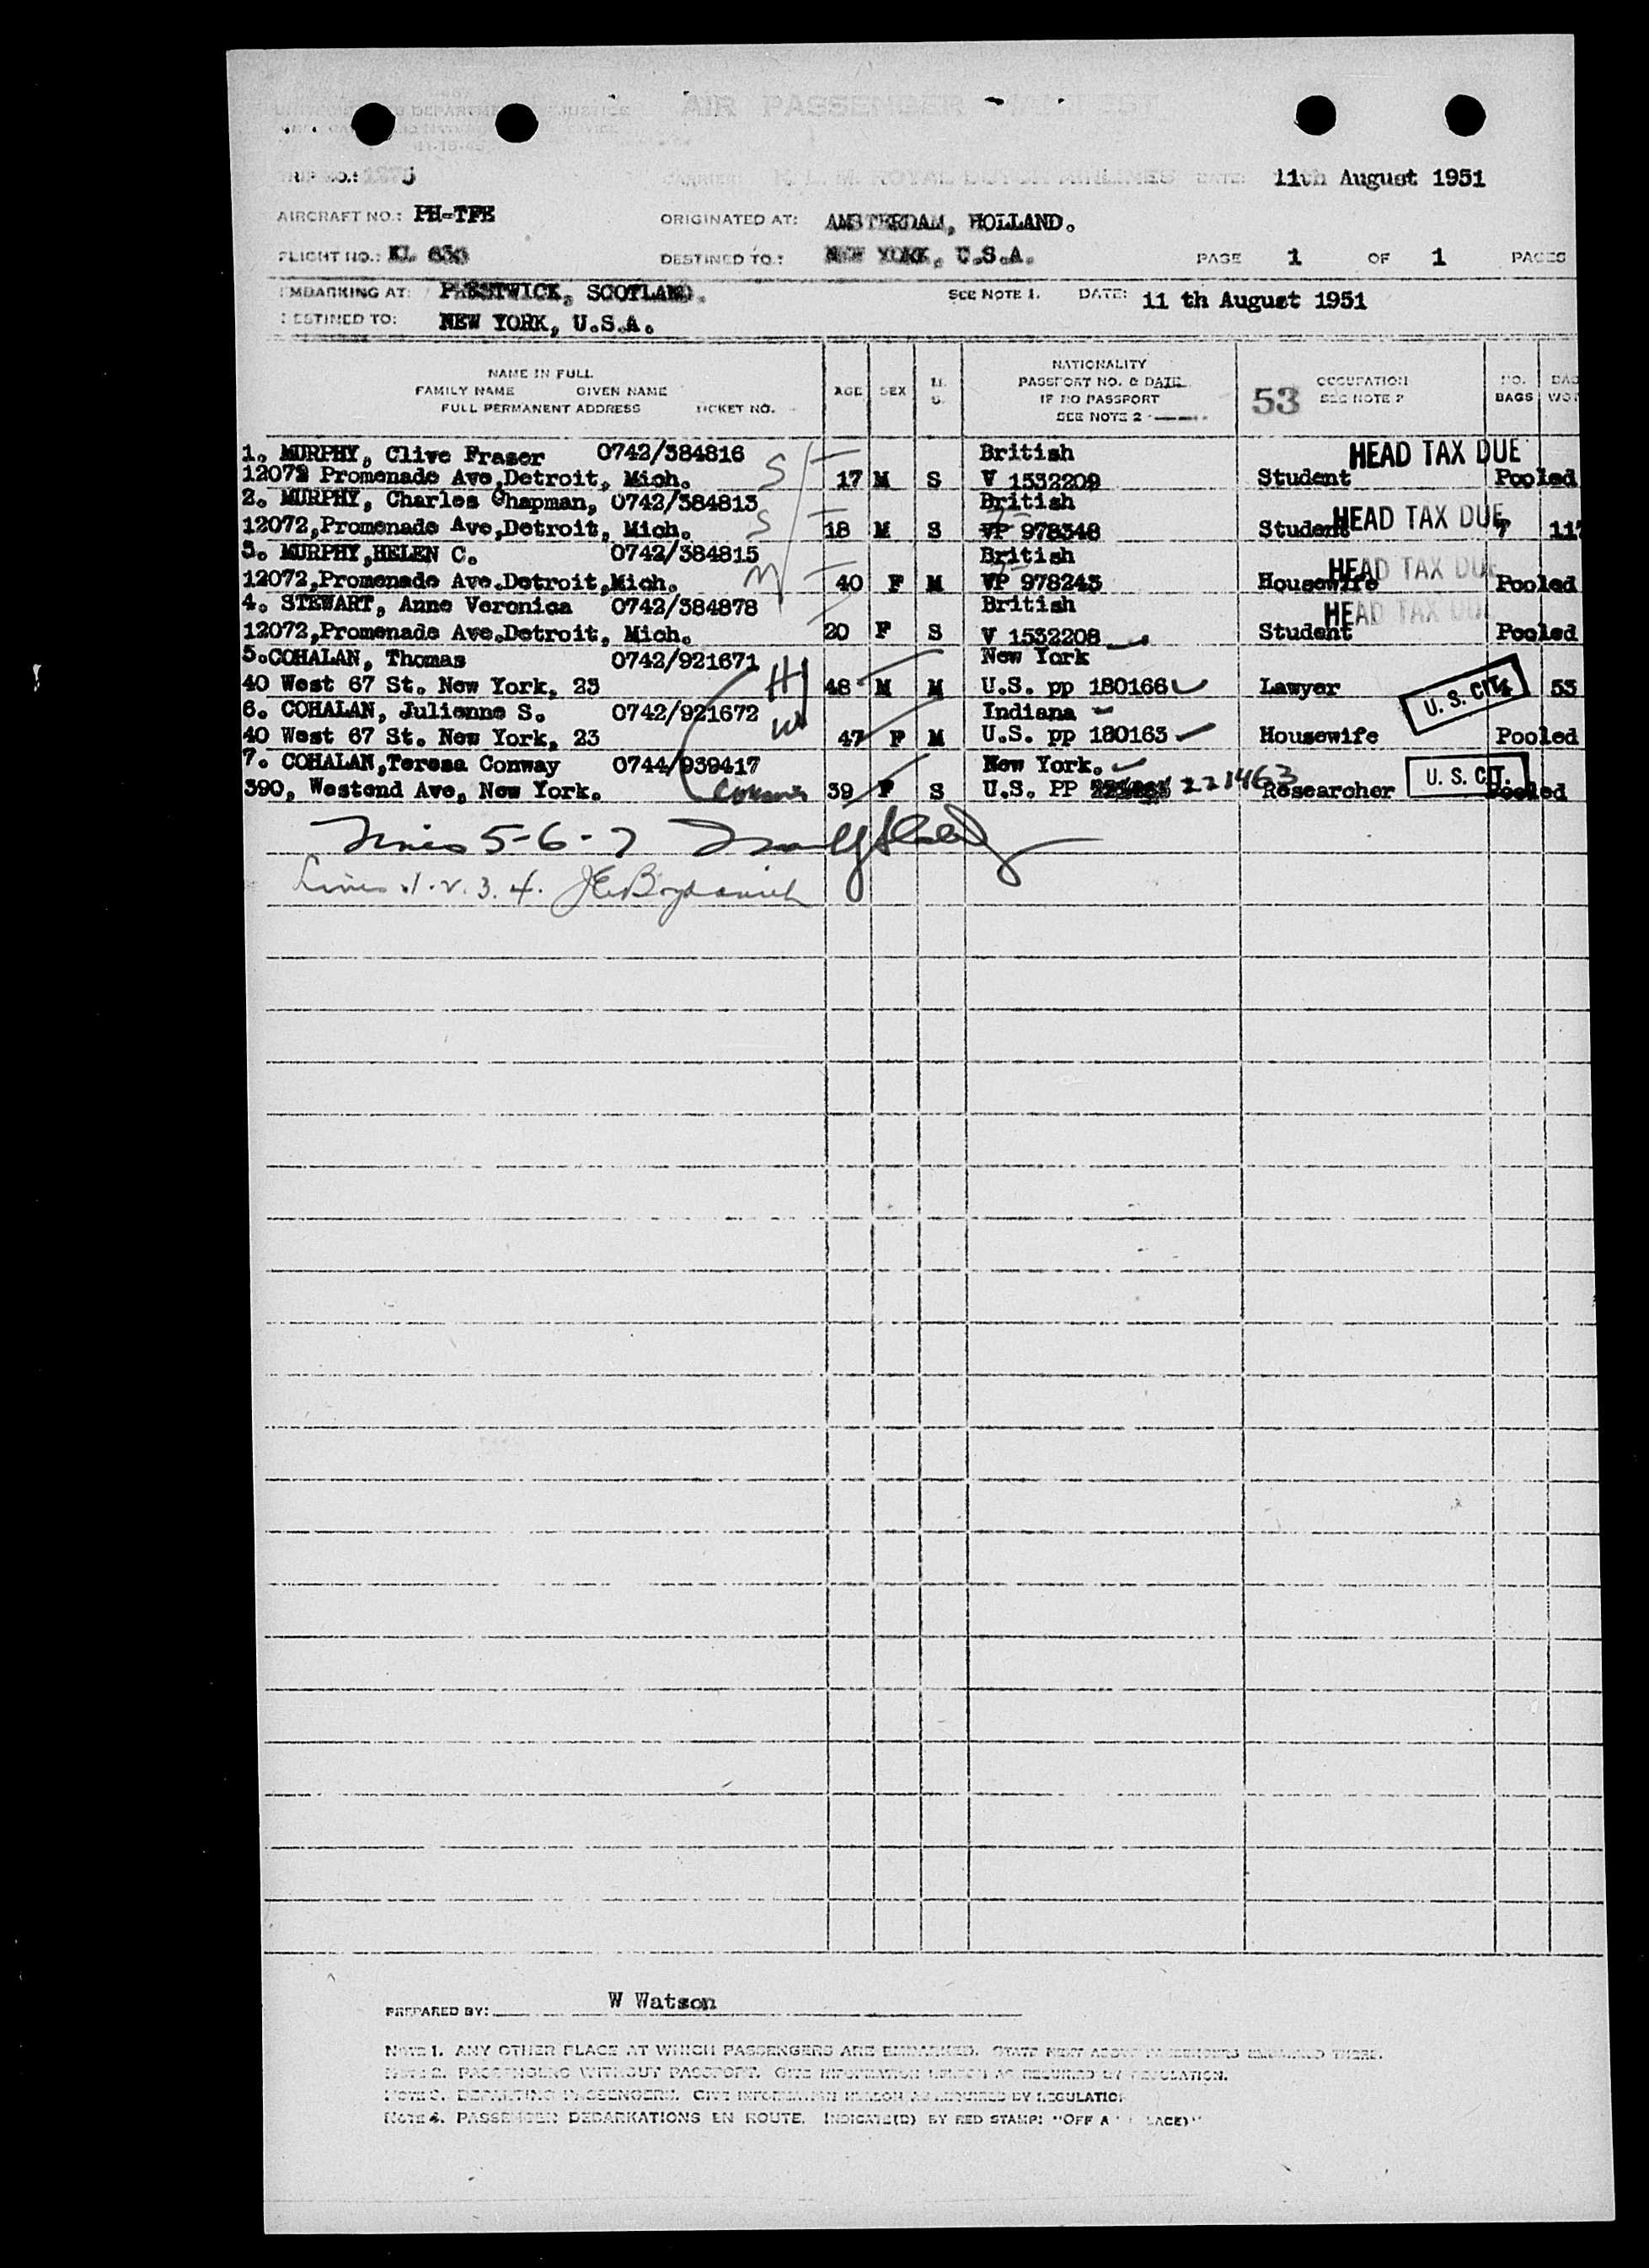 AIR PASSENGER MANIFEST
11-18-43
TRIP NO.:
CARRIER: K. L. M. ROYAL DUTCH AIRLINES DATE: 11th August 1951
AIRCRAFT NO.: PH-TFE ORIGINATED AT: AMSTERDAM, HOLLAND.
FLIGHT NO.: KL DESTINED TO.: NEW YORK, U.S.A. PAGE 1 OF 1 PAGES
EMBARKING AT: PRESTWICK, SCOTLAND. SEE NOTE 1. DATE: 11 th August 1951
DESTINED TO: NEW YORK, U.S.A.
NAME IN FULL
FAMILY NAME GIVEN NAME
FULL PERMANENT ADDRESS TICKET NO.
AGE SEX M. S.
NATIONALITY
PASSPORT NO. & DATE
IF NO PASSPORT
SEE NOTE 2
53 OCCUPATION
SEE NOTE
NO. BAGS
1. MURPHY, Clive Fraser 0742/384816 British HEAD TAX DUE
12072 Promenade Ave,Detroit, Mich. S 17 M S V 1532209 Student Pooled
2. MURPHY, Charles Chapman, 0742/384813 British
12072,Promenade Ave,Detroit, Mich. S 18 M S VP 978348 Student HEAD TAX DUE 7 117
3. MURPHY,HELEN C. 0742/384815 British
12072,Promenade Ave.Detroit,Mich. M 40 F M VP 978243 Housewife HEAD TAX DUE Pooled
4. STEWART, Anne Veronica 0742/384878 British HEAD TAX DUE
12072,Promenade Ave.Detroit, Mich. 20 F S V 1532208 Student Pooled
5.COHALAN, Thomas 0742/921671 New York
40 West 67 St. New York, 23 H 48 M M U.S. pp 180166 Lawyer U. S. CIT. 53
6. COHALAN, Julienne S. 0742/921672 Indiana
40 West 67 St. New York, 23 W 47 F M U.S. pp 180163 Housewife Pooled
7. COHALAN,Teresa Conway 0744/939417 New York.
390, Westend Ave, New York. 39 F S U.S. PP 221463 Researcher U. S. CIT. Pooled
Lines 5-6-7
Lines 1. 2. 3. 4.
PREPARED BY: W Watson
NOTE 1. ANY OTHER PLACE AT WHICH PASSENGERS ARE EMBARKED. STATE NEXT ABOVE PASSENGERS EMBARKED THERE.
NOTE 2. PASSENGERS WITHOUT PASSPORT. GIVE INFORMATION HEREON AS REQUIRED BY REGULATION.
NOTE 3. DEPARTING PASSENGERS. GIVE INFORMATION HEREON AS REQUIRED BY REGULATION
NOTE 4. PASSENGER DEBARKATIONS EN ROUTE. INDICATE(D) BY RED STAMP: "OFF AT (PLACE)"